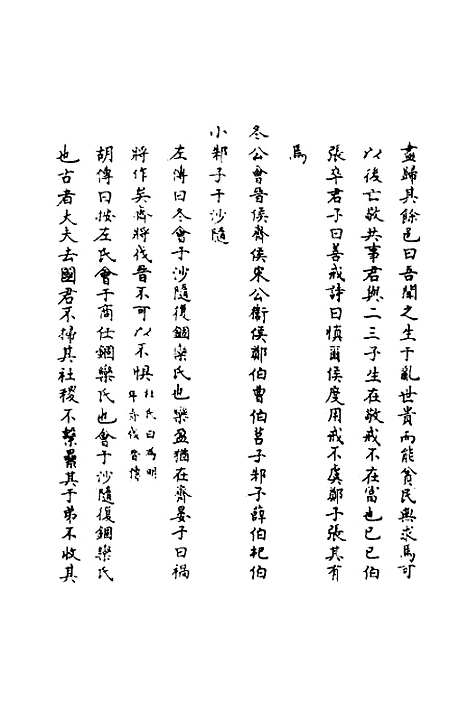 盡歸其餘邑曰吾聞之生于亂世貴而能貧民無求焉可
以後亡敬共事君與二三子生在敬戒不在富也己巳伯
張卒君子曰善戒詩曰慎爾侯度用戒不虞鄭子張其有
焉
冬公會晉侯齊侯宋公衛侯鄭伯曹伯莒子邾子薛伯杞伯
小邾子于沙隨
左傳曰冬會于沙隨復錮欒氏也欒盈猶在齊晏子曰禍
將作矣齊將伐晉不可以不懼杜氏曰為明年齊伐晉傳
胡傳曰按左氏會于商任錮欒氏也會于沙隨復錮欒氏
也古者大夫去國君不掃其社稷不繫纍其子弟不收其